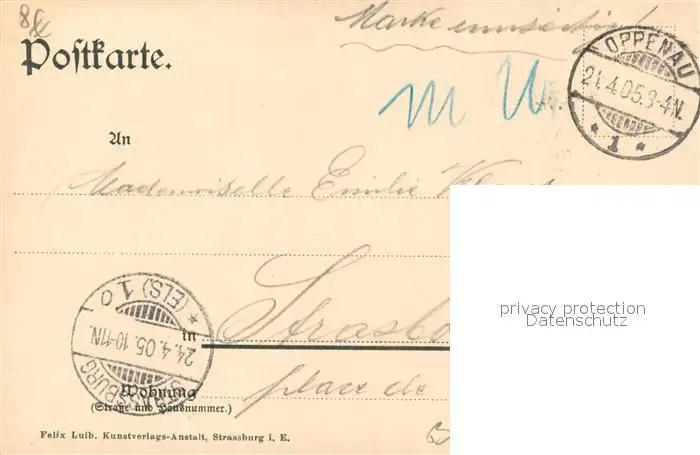 Marke umseitig!
Postkarte.
OPPENAU
21.4.05.3-4N.
* 1 *
An
Mademoiselle Emilie
privacy protection
Datenschutz
Strasbo
in
STRASSBURG
24.4.05.10-11N.
* (ELS) 1 o
place de
Wohnung
(Straße und Hausnummer.)
Felix Luib. Kunstverlags-Anstalt, Strassburg i. E.